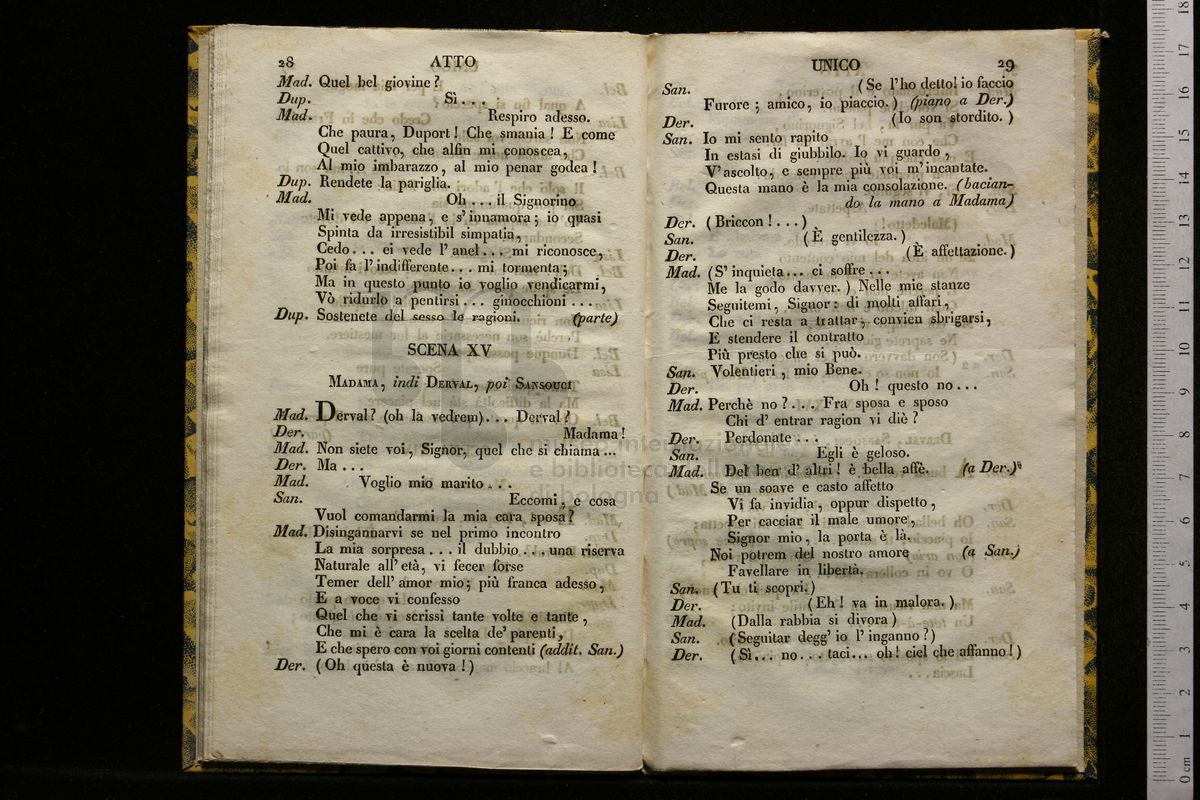 28 ATTO
Mad. Quel bel giovine?
Dup. Sì...
Mad. Respiro adesso.
Che paura, Duport! Che smania! E come
Quel cattivo, che alfin mi conoscea,
Al mio imbarazzo, al mio penar godea!
Dup. Rendete la pariglia.
Mad. Oh... il Signorino
Mi vede appena, e s'innamora; io quasi
Spinta da irresistibil simpatia,
Cedo... ei vede l'anel... mi riconosce,
Poi fa l'indifferente... mi tormenta;
Ma in questo punto io voglio vendicarmi,
Vò ridurlo a pentirsi... ginocchioni...
Dup. Sostenete del sesso le ragioni. (parte)
SCENA XV
MADAMA, indi DERVAL, poi SANSOUCI
Mad. Derval? (oh la vedrem)... Derval?
Der. Madama!
Mad. Non siete voi, Signor, quel che si chiama...
Der. Ma...
Mad. Voglio mio marito...
San. Eccomi, e cosa
Vuol comandarmi la mia cara sposa?
Mad. Disingannarvi se nel primo incontro
La mia sorpresa... il dubbio... una riserva
Naturale all'età, vi fecer forse
Temer dell'amor mio; più franca adesso,
E a voce vi confesso
Quel che vi scrissi tante volte e tante,
Che mi è cara la scelta de' parenti,
E che spero con voi giorni contenti (addit. San.)
Der. (Oh questa è nuova!)
UNICO 29
San. (Se l'ho detto! io faccio
Furore; amico, io piaccio.) (piano a Der.)
Der. (Io son stordito.)
San. Io mi sento rapito
In estasi di giubbilo. Io vi guardo,
V'ascolto, e sempre più voi m'incantate.
Questa mano è la mia consolazione. (bacian-
do la mano a Madama)
Der. (Briccon!...)
San. (È gentilezza.)
Der. (È affettazione.)
Mad. (S'inquieta... ci soffre...
Me la godo davver.) Nelle mie stanze
Seguitemi, Signor: di molti affari,
Che ci resta a trattar, convien sbrigarsi,
E stendere il contratto
Più presto che si può.
San. Volentieri, mio Bene.
Der. Oh! questo no...
Mad. Perchè no?... Fra sposa e sposo
Chi d'entrar ragion vi diè?
Der. Perdonate...
San. Egli è geloso.
Mad. Del ben d'altri! è bella affè. (a Der.)
Se un soave e casto affetto
Vi fa invidia, oppur dispetto,
Per cacciar il male umore,
Signor mio, la porta è là.
Noi potrem del nostro amore (a San.)
Favellare in libertà.
San. (Tu ti scopri.)
Der. (Eh! va in malora.)
Mad. (Dalla rabbia si divora)
San. (Seguitar degg'io l'inganno?)
Der. (Sì... no... taci... oh! ciel che affanno!)